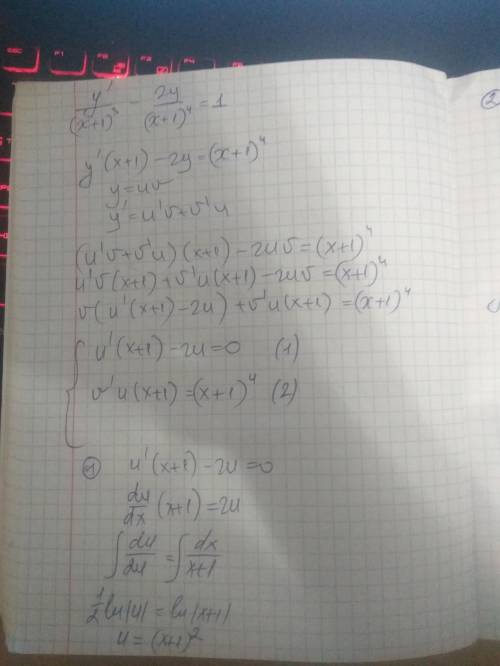 y'/(x+1)³ - 2y/(x+1)⁴ = 1
②
y'(x+1) - 2y = (x+1)⁴
y = uv
y' = u'v + v'u
(u'v + v'u)(x+1) - 2uv = (x+1)⁴
u'v(x+1) + v'u(x+1) - 2uv = (x+1)⁴
v(u'(x+1) - 2u) + v'u(x+1) = (x+1)⁴
{ u'(x+1) - 2u = 0 (1)
v'u(x+1) = (x+1)⁴ (2)
① u'(x+1) - 2u = 0
du/dx (x+1) = 2u
∫ du/2u = ∫ dx/x+1
1/2 ln|u| = ln|x+1|
u = (x+1)²